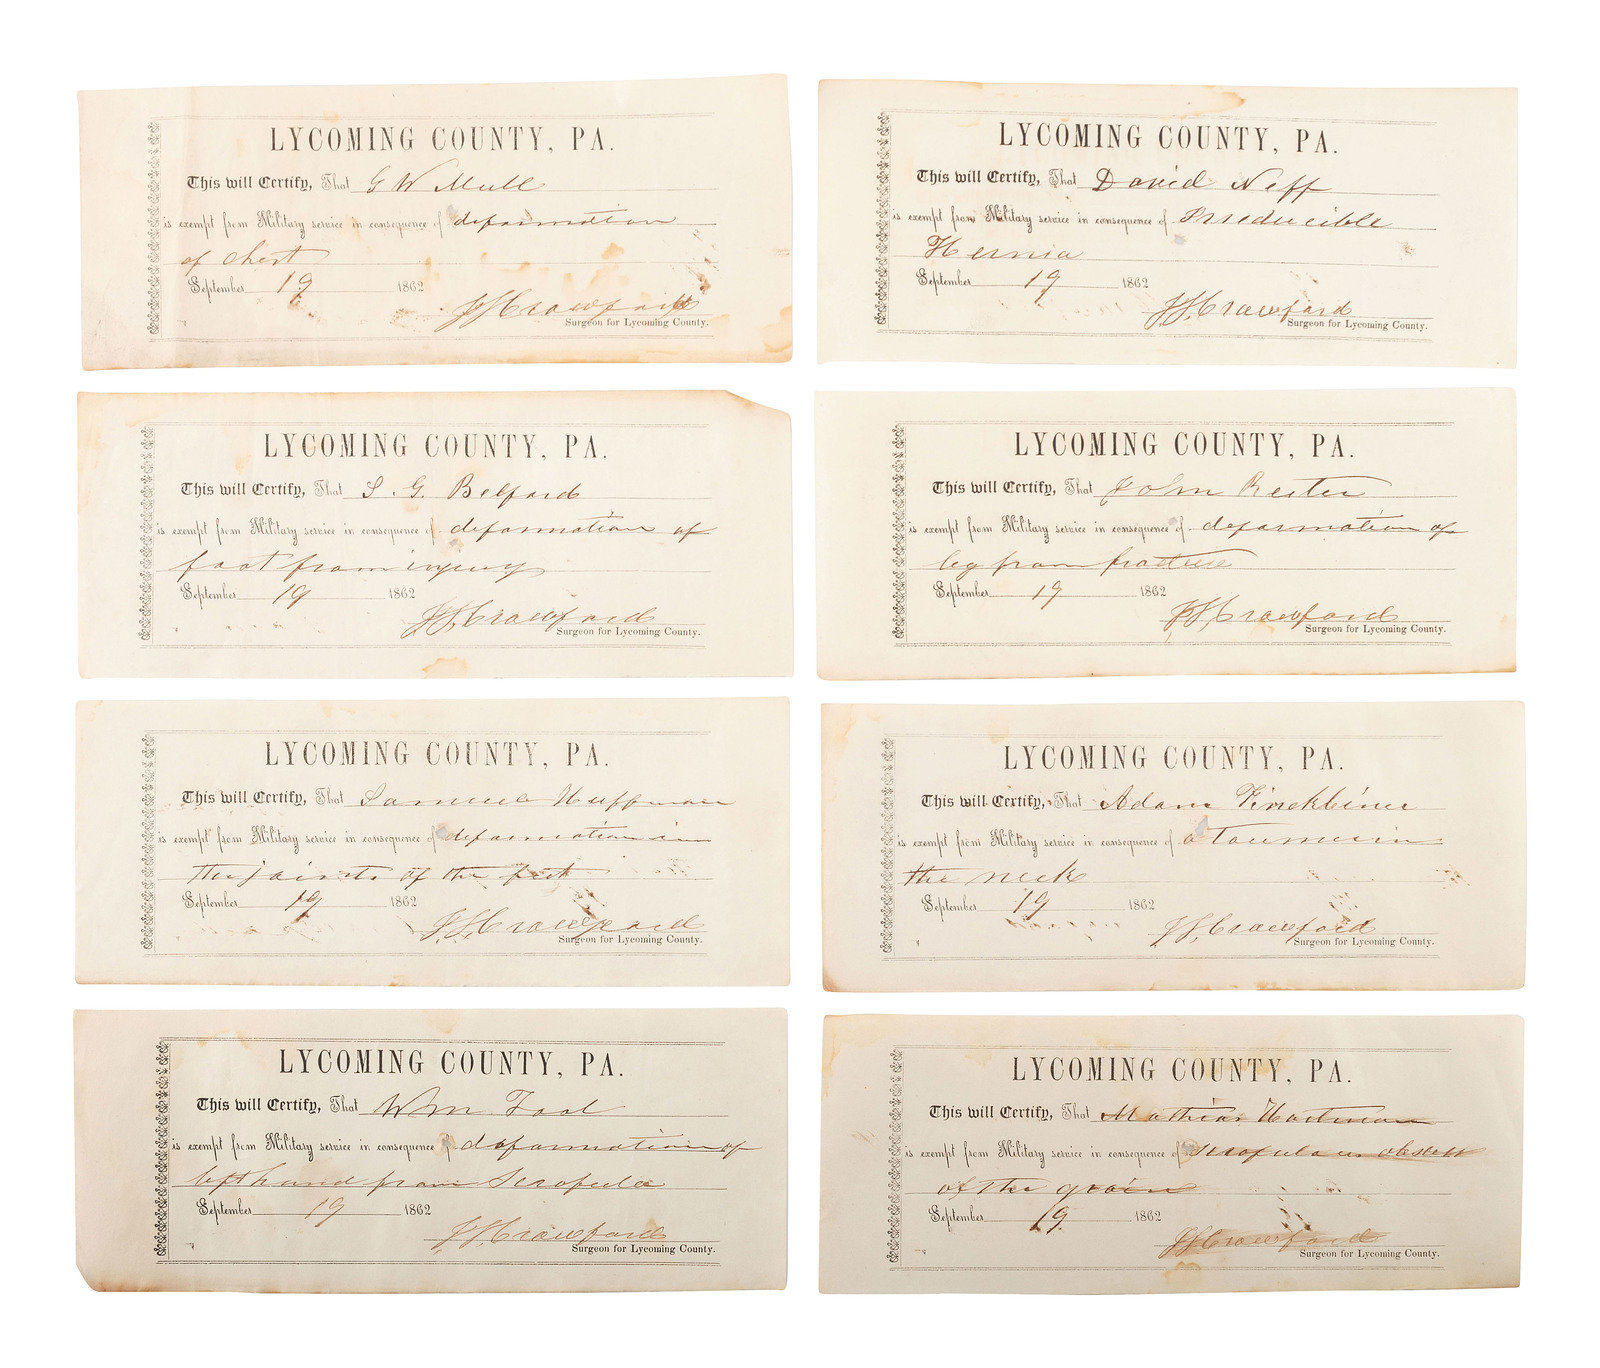 LYCOMING COUNTY, PA.
This will Certify, That G W Mull
is exempt from Military service in consequence of deformation
of chest
September 19 1862
J S Crawford
Surgeon for Lycoming County.
LYCOMING COUNTY, PA.
This will Certify, That David Neff
is exempt from Military service in consequence of Irreducible
Hernia
September 19 1862
J S Crawford
Surgeon for Lycoming County.
LYCOMING COUNTY, PA.
This will Certify, That S. G. Belford
is exempt from Military service in consequence of deformation of
foot from injury
September 19 1862
J S Crawford
Surgeon for Lycoming County.
LYCOMING COUNTY, PA.
This will Certify, That John
is exempt from Military service in consequence of deformation of
leg from fracture
September 19 1862
J S Crawford
Surgeon for Lycoming County.
LYCOMING COUNTY, PA.
This will Certify, That Samuel Huffman
is exempt from Military service in consequence of deformation in
the joints of the feet
September 19 1862
J S Crawford
Surgeon for Lycoming County.
LYCOMING COUNTY, PA.
This will Certify, That Adam Finckbiner
is exempt from Military service in consequence of a
the neck
September 19 1862
J S Crawford
Surgeon for Lycoming County.
LYCOMING COUNTY, PA.
This will Certify, That Wm
is exempt from Military service in consequence of deformation of
left hand from Scrofula
September 19 1862
J S Crawford
Surgeon for Lycoming County.
LYCOMING COUNTY, PA.
This will Certify, That Mathias Hartman
is exempt from Military service in consequence of Scrofulous
of the groin
September 19 1862
J S Crawford
Surgeon for Lycoming County.